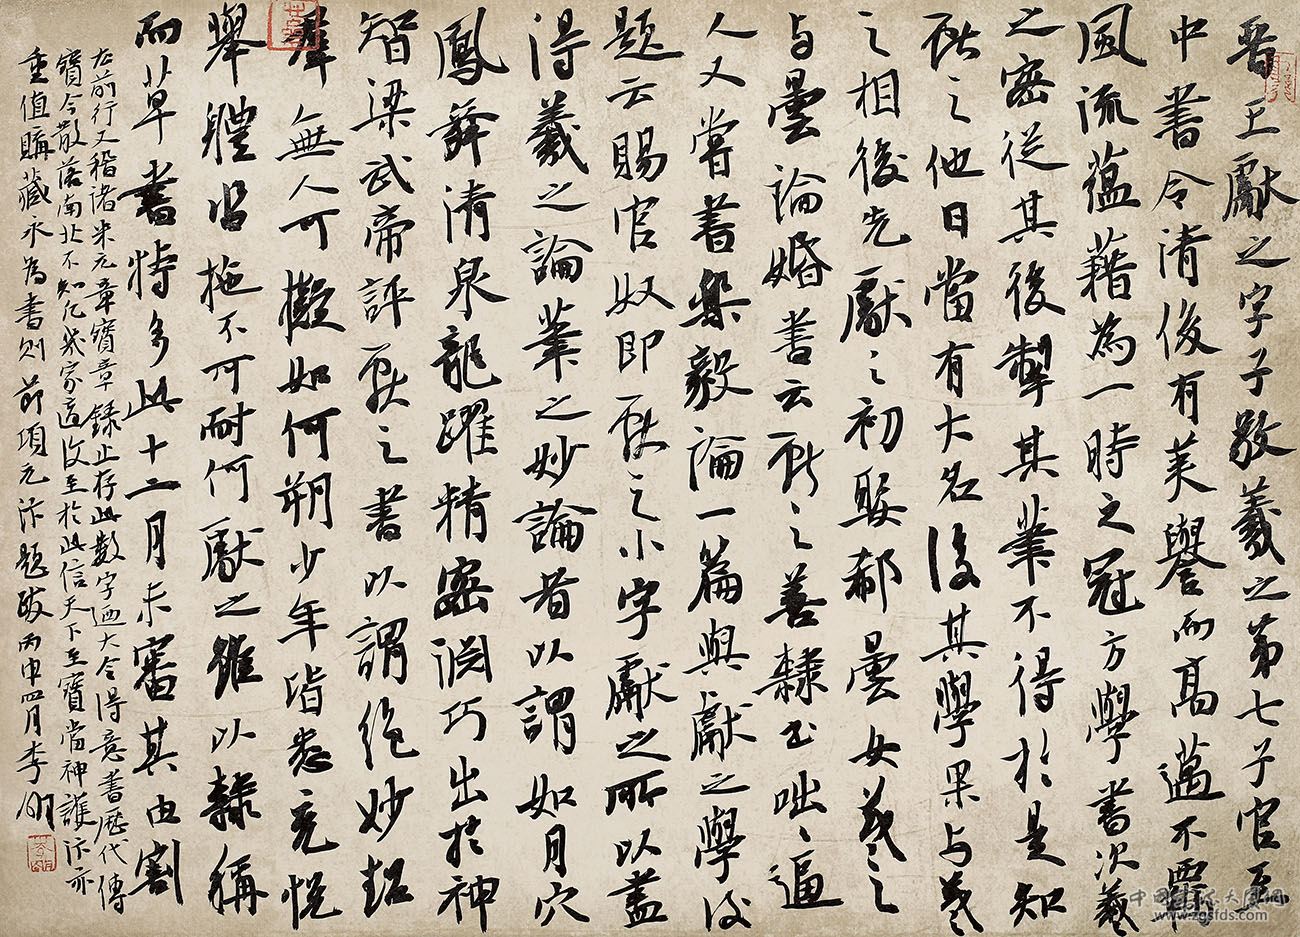 晋王獻之字子敬羲之第七子官至
中書令清俊有美譽而高邁不羈
風流蘊藉為一時之冠方學書次羲
之密從其後掣其筆不得於是知
獻之他日當有大名後其學果与羲
之相後先獻之初娶郗曇女羲之
与曇論婚書云獻之善隸書咄咄逼
人又嘗書樂毅論一篇與獻之學後
題云賜官奴即獻之小字獻之所以盡
得羲之論筆之妙論者以謂如月穴
鳳舞清泉龍躍精密淵巧出於神
智梁武帝評獻之書以謂絶妙超
羣無人可擬如何朔少年皆悉充悦
舉體沓拖不可耐何獻之雖以隸稱
而草書特多此十二月未審其由割
右前行又稽諸米元章寶章録止存此數字迺大令得意書歷代傳
寶今散落南北不知凡幾家適至於此信天下至寶當神護汴亦
重值購藏永為書則 項元汴題跋 丙申四月李明
www.zgsfds.com